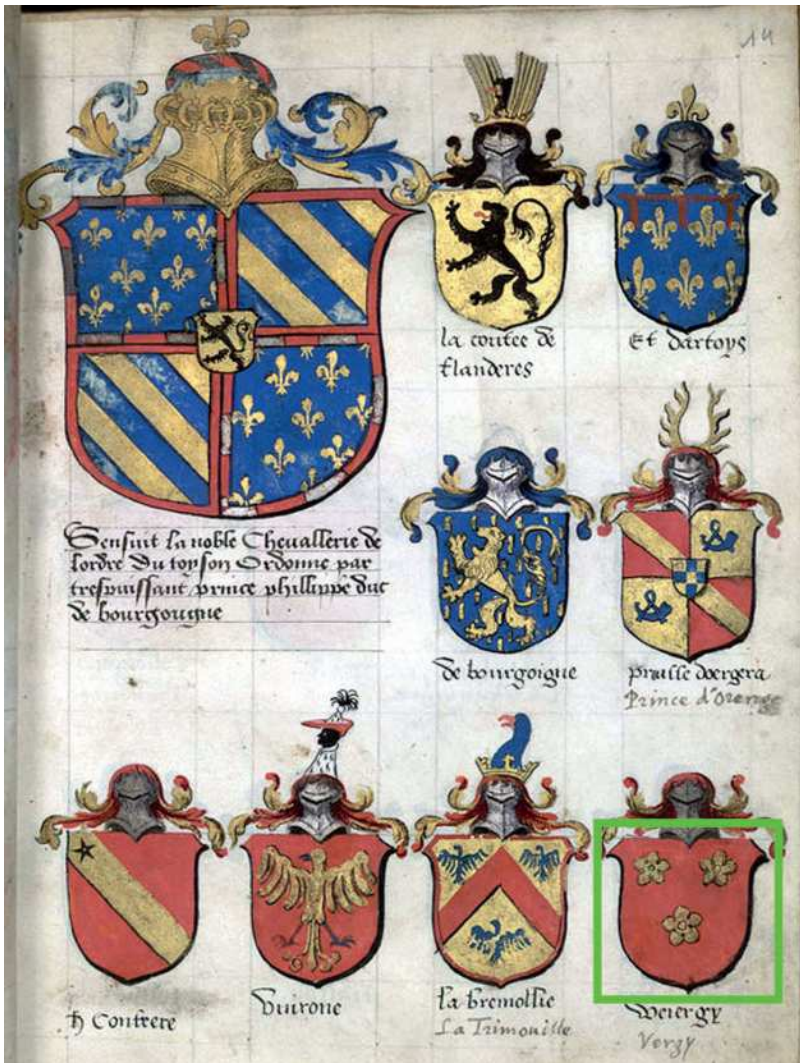 14
la contee de
flanderes
Et dartoys
Sensuit la noble Chevallerie de
lordre du toyson Ordonne par
trespuissant prince phillippe duc
de bourgougne
de bourgoigne
Prince d'Orenge
h Contrere
Vuirone
la tremollie
La Trimouille
Veiergy
Vergy